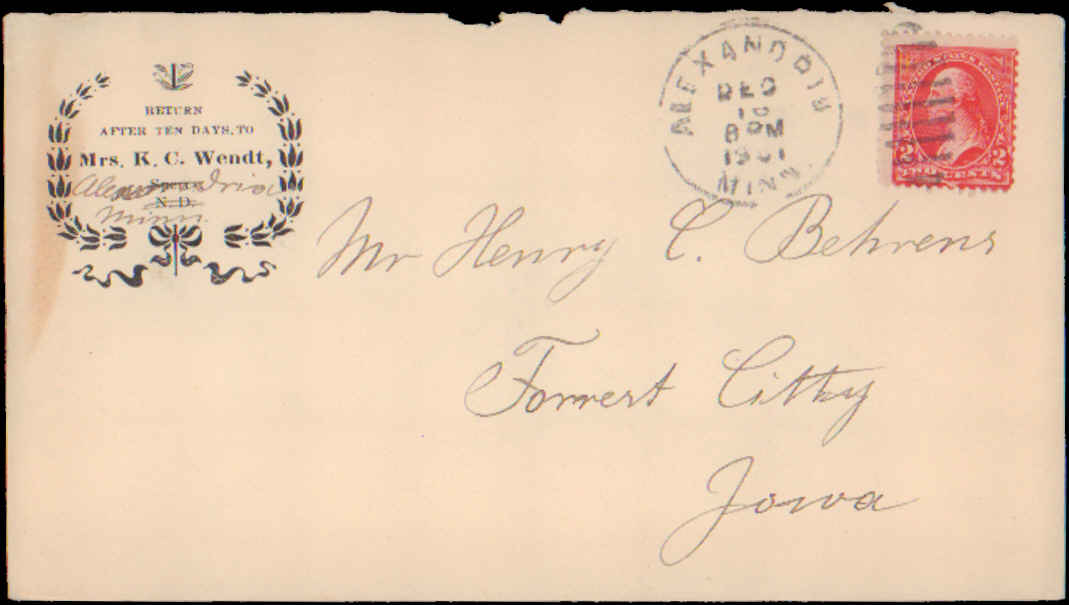 RETURN
AFTER TEN DAYS, TO
Mrs. K. C. Wendt,
N. D.
Minn.
ALEXANDRIA
DEC
8 PM
1901
MINN.
2 2
TWO CENTS
Mr Henry C. Behrens
Forrest Citty
Iowa